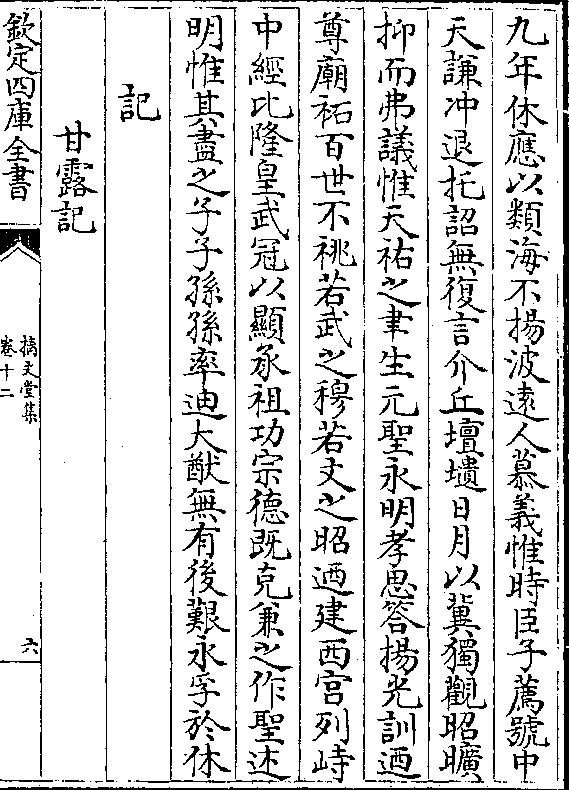 九年休應以類海不揚波遠人慕義惟時臣子薦號中
天謙冲退托詔無復言介丘壇壝日月以冀獨觀昭曠
抑而弗議惟天祐之聿生元聖永明孝思答揚光訓迺
尊廟祏百世不祧若武之穆若文之昭迺建西宫列峙
中經比隆皇武冠以顯承祖功宗德既克兼之作聖述
明惟其盡之子子孫孫率迪大猷無有後艱永孚於休
記
甘露記
欽定四庫全書
摛文堂集
卷十二
六